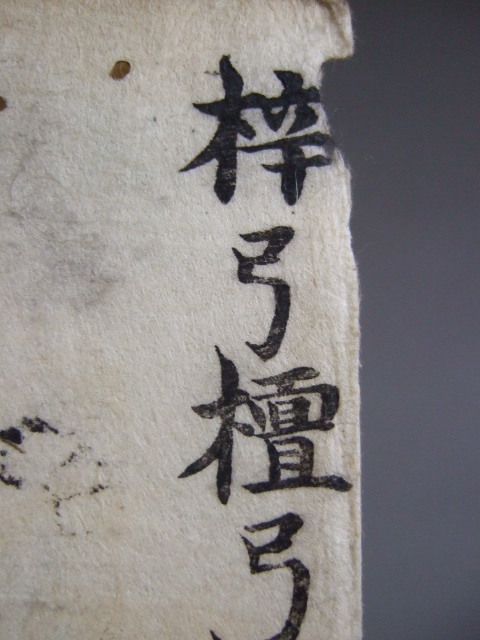 梓弓檀弓